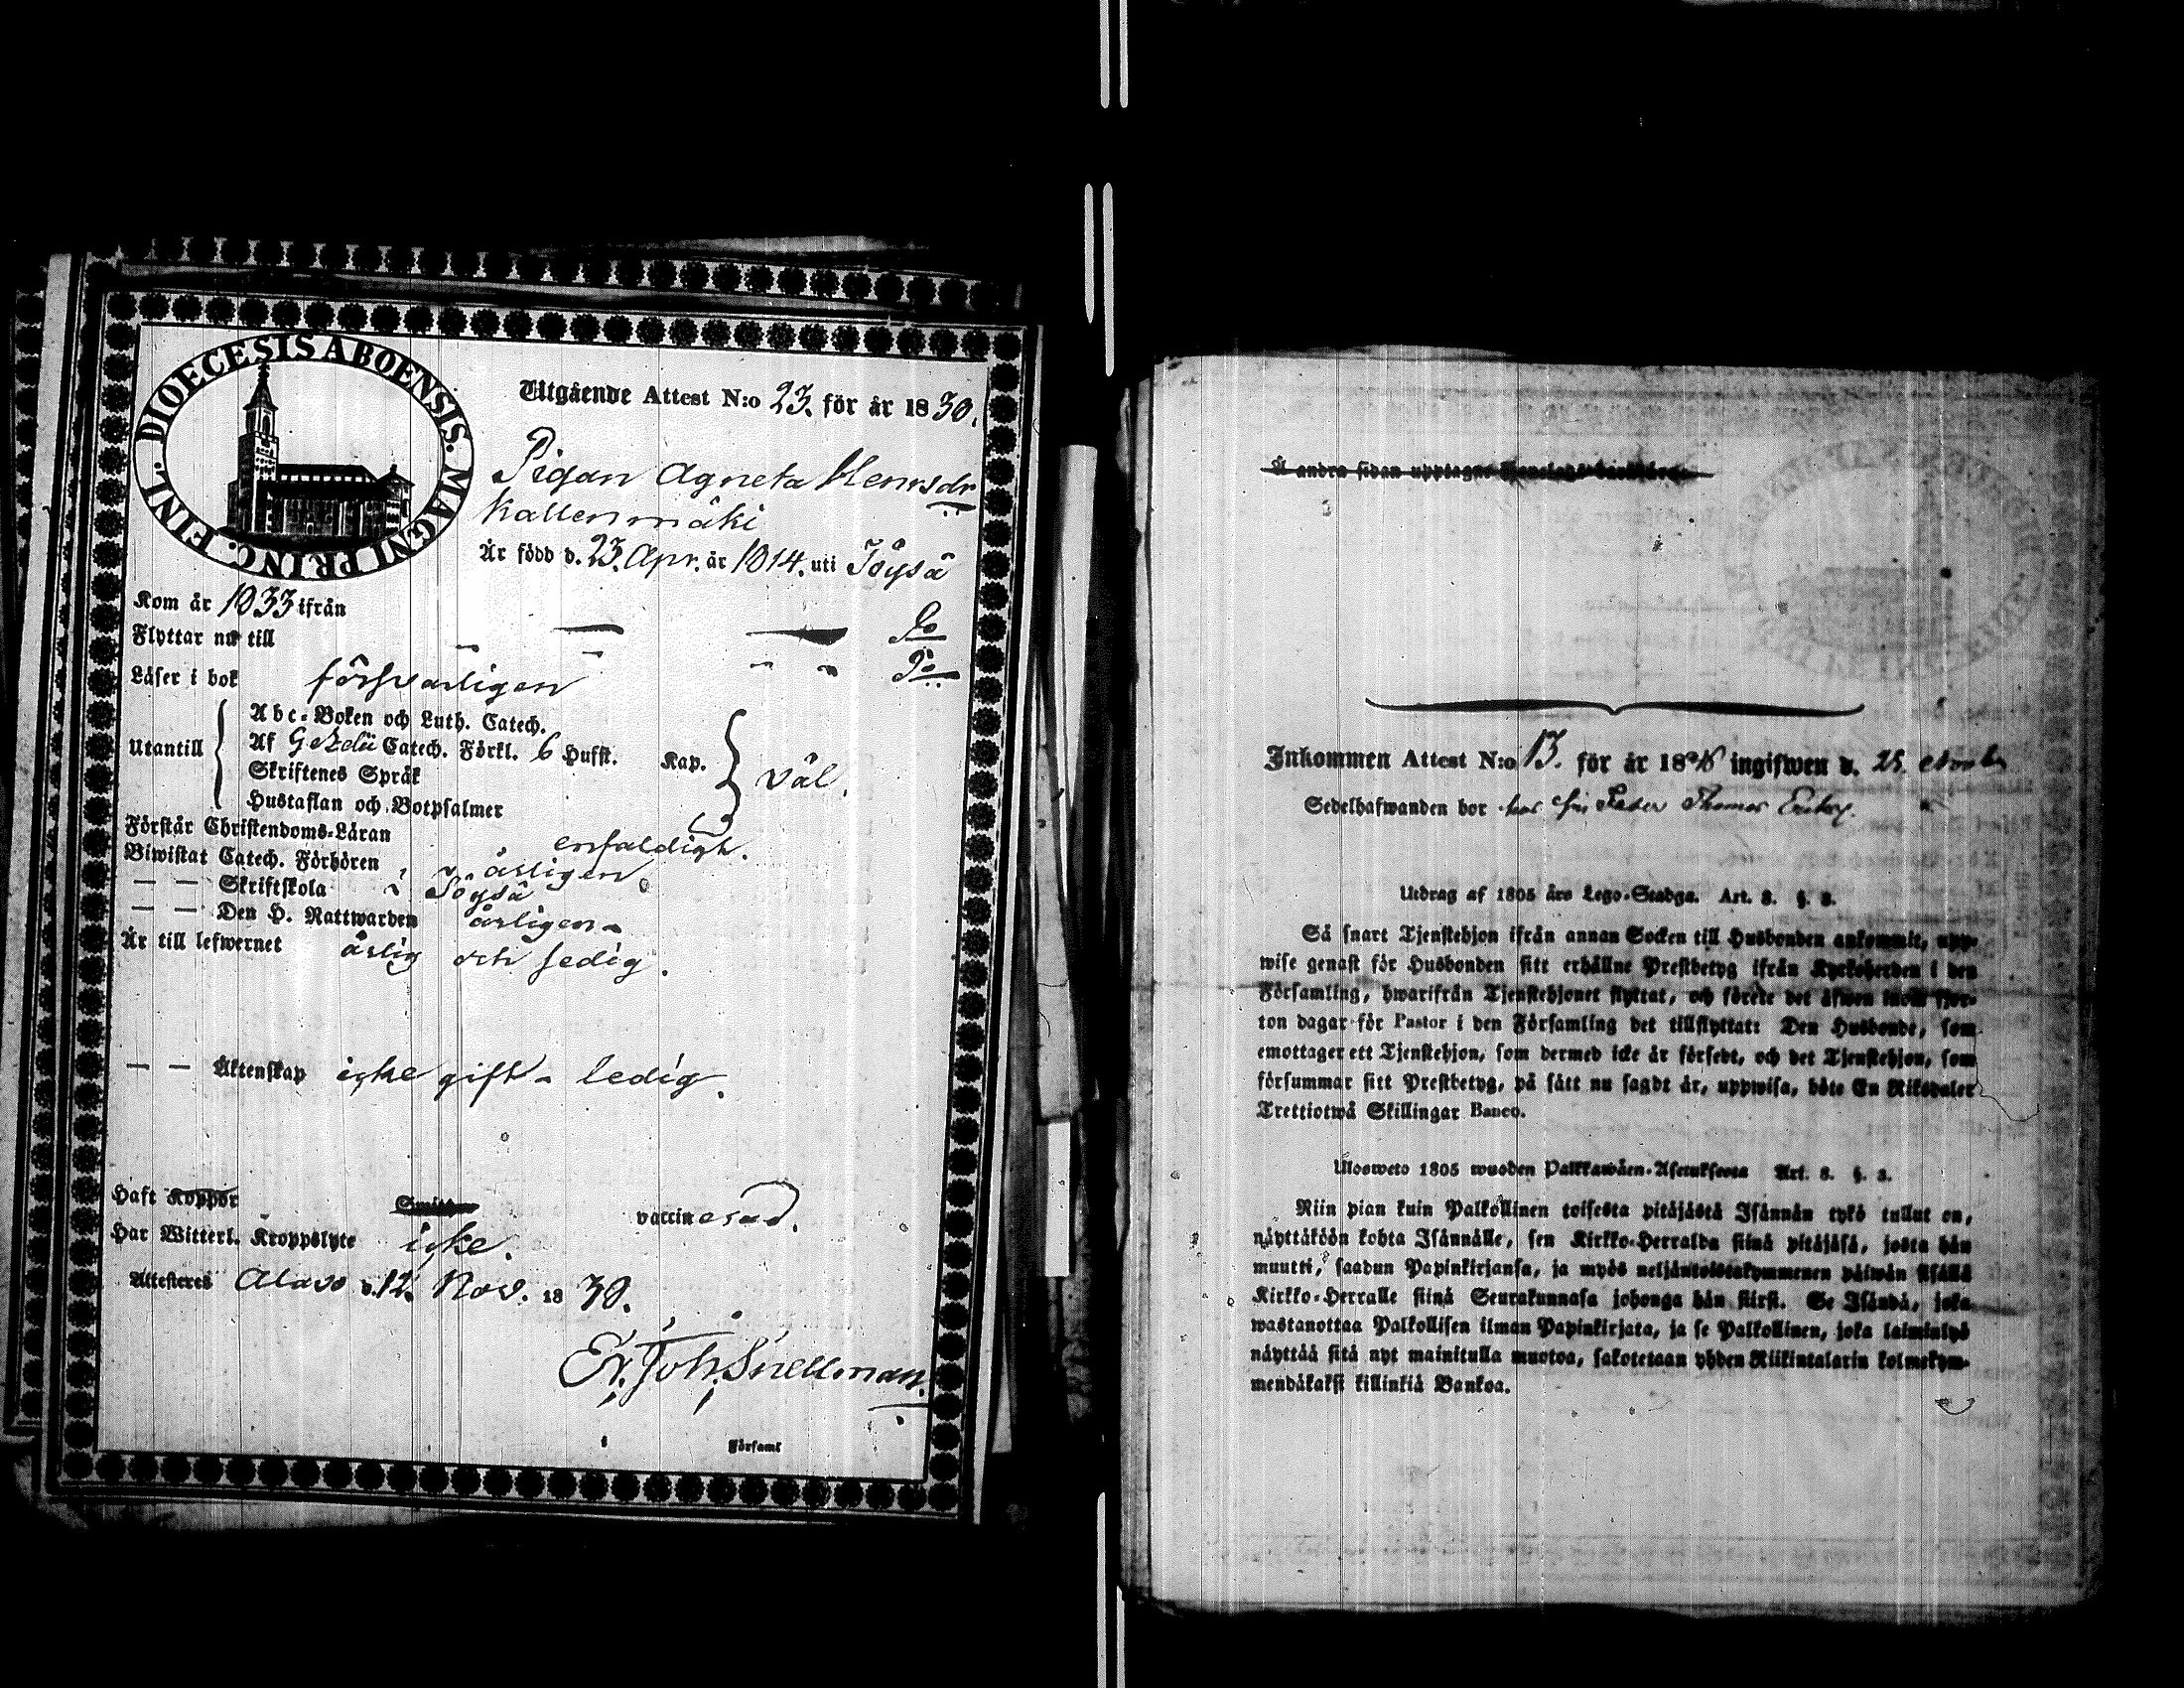 DIOECESIS ABOENSIS. MAGNI PRINC. FINL.
Utgående Attest N:o 23. för år 1830.
Pigan Agneta Henrsdr
Kallenmäki
Är född d. 23. Apr. år 1814. uti Töysä
Kom år 1833 ifrån — — Do
Flyttar nu till — — Do
Läser i bok försvarligen
Utantill
Abc-Boken och Luth. Catech.
Af Gezelii Catech. Förkl. 6 Hufst. Kap. väl.
Skriftenes Språk
Hustaflan och Botpsalmer
Förstår Christendoms-Läran enfaldigt.
Biwistat Catech. Förhören årligen
— — Skriftskola i Töysä
— — Den H. Nattwarden årligen
Är till lefwernet ärlig och sedig.
— — Äktenskap icke gift - ledig.
Haft Koppor vaccinerad.
Har Witterl. Kroppslyte icke.
Attesteres Alavo d. 12. Nov. 1830.
Er. Joh. Snellman.
Församl
Å andra sidan upptagne
Inkommen Attest N:o 13. för år 18 ingifwen d. 25.
Sedelhafwanden bor hos Thomas
Utdrag af 1805 års Lego-Stadga. Art. 8. §. 8.
Så snart Tjenstehjon ifrån annan Socken till Husbonden ankommit, upp-
wise genast för Husbonden sitt erhållne Prestbetyg ifrån Kyrkoherden i den
Församling, hwarifrån Tjenstehjonet flyttat, och förete det äfwen inom fjor-
ton dagar för Pastor i den Församling det tillflyttat: Den Husbonde, som
emottager ett Tjenstehjon, som dermed icke är försedt, och det Tjenstehjon, som
försummar sitt Prestbetyg, på sätt nu sagdt är, uppwisa, böte En Riksdaler
Trettiotwå Skillingar Banco.
Ulosweto 1805 wuoden Palkkawäen-Asetuksesta Art. 8. §. 8.
Niin pian kuin Palkollinen toisesta pitäjästä Isännän tykö tullut on,
näyttäköön kohta Isännälle, sen Kirkko-Herralda siinä pitäjäsä, josta hän
muutti, saadun Papinkirjansa, ja myös neljäntoistakymmenen päiwän sisällä
Kirkko-Herralle siinä Seurakunnasa johonga hän siirsi. Se Isändä, joka
wastanottaa Palkollisen ilman Papinkirjata, ja se Palkollinen, joka laiminlyö
näyttää sitä nyt mainitulla muotoa, sakotetaan yhden Riikintalarin kolmekym-
mendäkaksi killinkiä Bankoa.